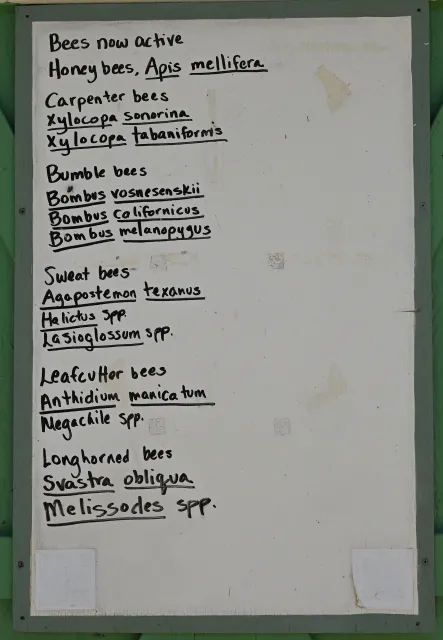 Bees now active
Honey bees, Apis mellifera
Carpenter bees
Xylocopa sonorina
Xylocopa tabaniformis
Bumble bees
Bombus vosnesenskii
Bombus californicus
Bombus melanopygus
Sweat bees
Agapostemon texanus
Halictus spp.
Lasioglossum spp.
Leafcutter bees
Anthidium manicatum
Megachile spp.
Longhorned bees
Svastra obliqua
Melissodes spp.